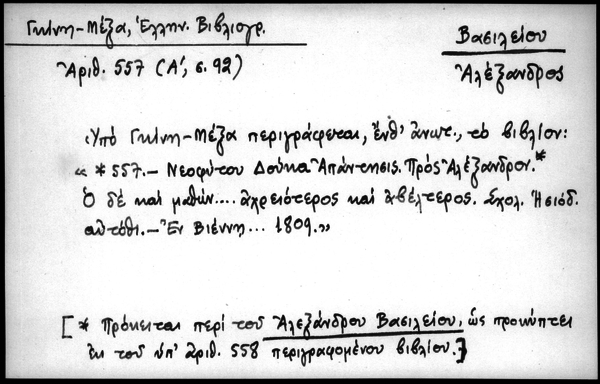 Γκίνη-Μέξα, Ἑλλην. Βιβλιογρ.
Βασιλείου
Ἀριθ. 557 (Α', σ. 92)
Ἀλέξανδρος
Ὑπό Γκίνη-Μέξα περιγράφεται, ἔνθ' ἀνωτ., τό βιβλίον:
« * 557.- Νεοφύτου Δούκα Ἀπάντησις. Πρός Ἀλέξανδρον.*
Ὁ δέ καί μαθών.... ἀχρειότερος καί ἀβέλτερος. Σχολ. Ἡσιόδ.
αὐτόθι.- Ἐν Βιέννῃ... 1809.»
[* Πρόκειται περί τοῦ Ἀλεξάνδρου Βασιλείου, ὡς προκύπτει
ἐκ τοῦ ὑπ' ἀριθ. 558 περιγραφομένου βιβλίου.]